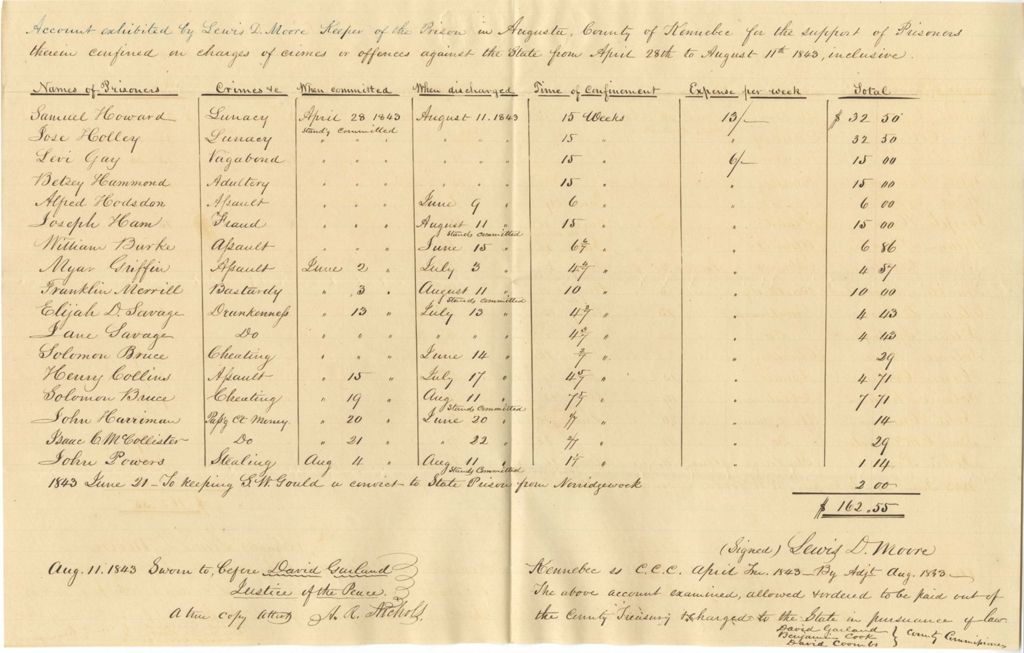 Account exhibited by Lewis D. Moore Keeper of the Prison in Augusta, County of Kennebec for the support of Prisoners
therein confined on charges of crimes or offences against the State from April 28th to August 11th 1843, inclusive.
Names of Prisoners Crimes &c When committed When discharged Time of Confinement Expense per week Total
Samuel Howard Lunacy April 28 1843 August 11. 1843 15 Weeks 13/- $ 32 50
Stands committed
Jose Holley Lunacy " " " " " " 15 " " 32 50
Levi Gay Vagabond " " " " " " 15 " 6/- 15 00
Betsey Hammond Adultery " " " " " " 15 " " 15 00
Alfred Hodsdon Assault " " " June 9 " 6 " " 6 00
Joseph Ham Fraud " " " August 11 " 15 " " 15 00
Stands committed
William Burke Assault " " " June 15 " 6 6/7 " " 6 86
Myar Griffin Assault June 2 " July 3 " 4 4/7 " " 4 57
Franklin Merrill Bastardy " 3 " August 11 " 10 " " 10 00
Stands committed
Elijah D. Savage Drunkenness " 13 " July 13 " 4 3/7 " " 4 43
Jane Savage Do " " " " " " 4 3/7 " " 4 43
Solomon Bruce Cheating " " " June 14 " 2/7 " " 29
Henry Collins Assault " 15 " July 17 " 4 5/7 " " 4 71
Solomon Bruce Cheating " 19 " Aug 11 " 7 5/7 " " 7 71
Stands committed
John Harriman Passg Ct. Money " 20 " June 20 " 1/7 " " 14
Isaac C McCollister Do " 21 " " 22 " 2/7 " " 29
John Powers Stealing Aug 4 " Aug 11 " 1 1/7 " " 1 14
Stands committed
1843 June 21 - To keeping G. W. Gould a convict to State Prison from Norridgewock 2 00
$ 162.55
(Signed) Lewis D. Moore
Aug. 11. 1843 Sworn to, before David Garland
Justice of the Peace.
A true copy Attest A. R. Nichols.
Kennebec ss C.C.C. April Tm. 1843 - By Adjt Aug. 1843 -
The above account examined, allowed & ordered to be paid out of
the County Treasury & charged to the State in pursuance of law
David Garland
Benjamin Cook } County Commissioners
David Coombs